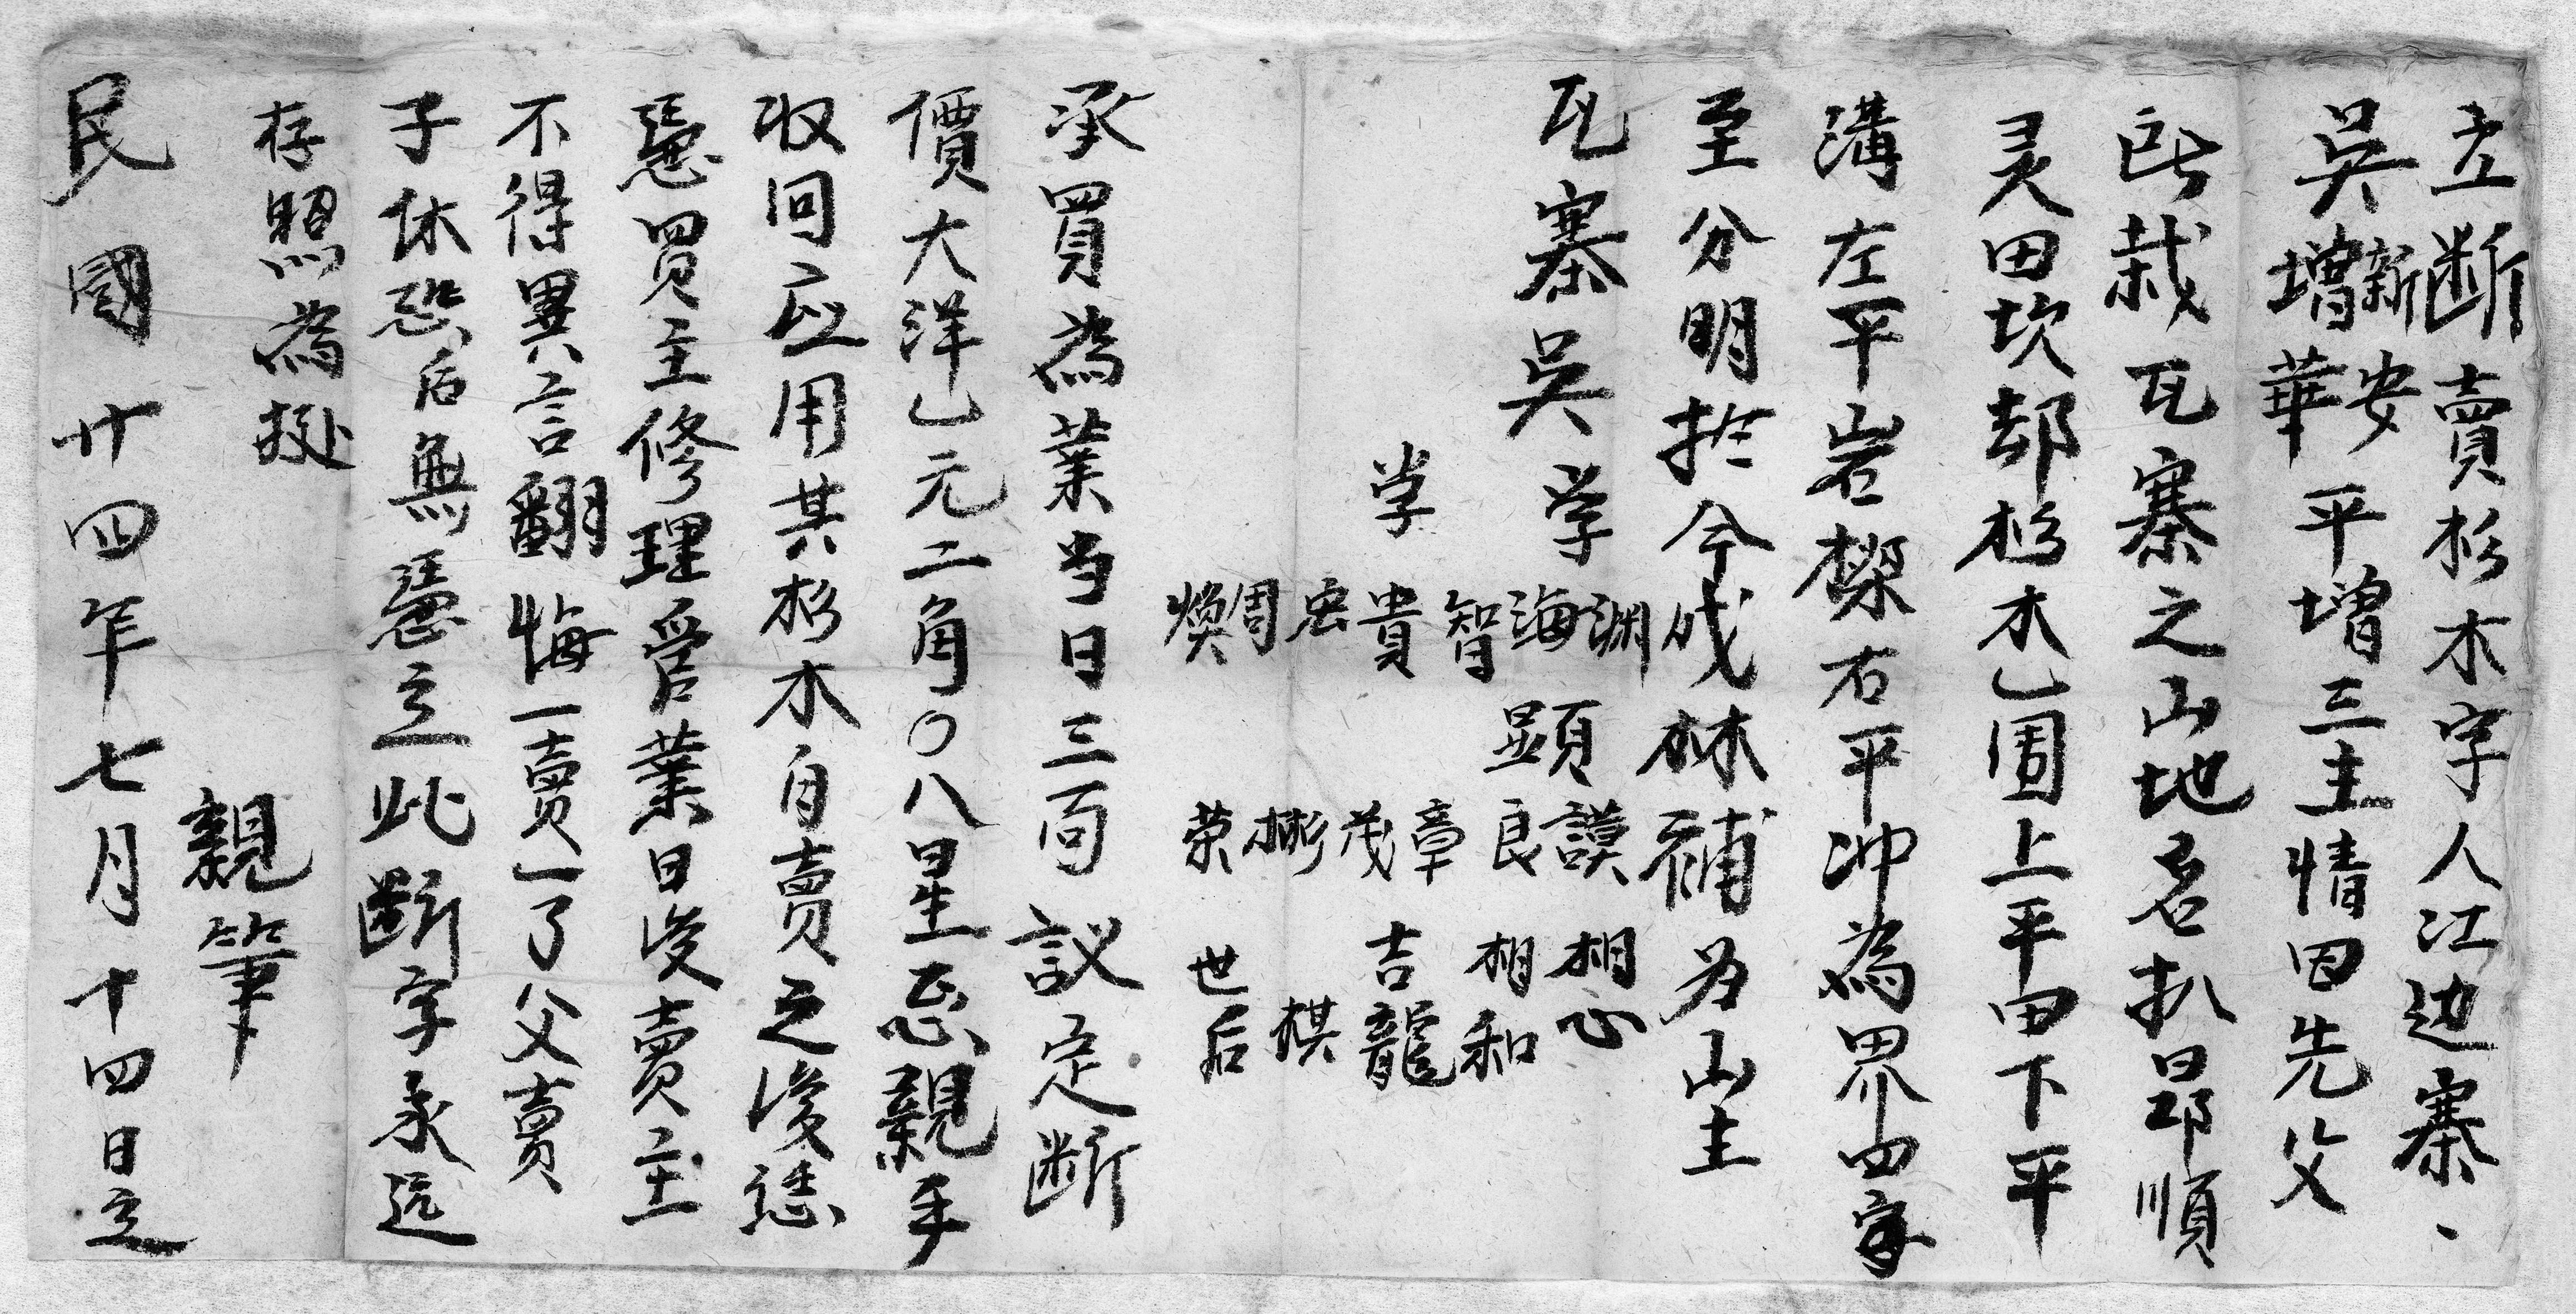 立断賣杉木字人江边寨、
吳新安
增華平增三主情因先父
所栽瓦寨之山地名扒昂順
灵田坎却杉木乙圍上平田下平
溝左平岩樑右平冲為界四字
至分明扵今成林補为山主
瓦寨吳学渊顕謨相心
海良相和
智章
学貴茂吉龍
忠彬棋
周荣世后
煥
承買為業当日三面議定断
價大洋乙元二角〇八星正親手
収回应用其杉木自賣之後凴
憑買主修理管業日後賣主
不得異言翻悔一賣一了父賣
子休恐后無憑立此断字永遠
存照為拠
親筆
民國廿四年七月十四日立